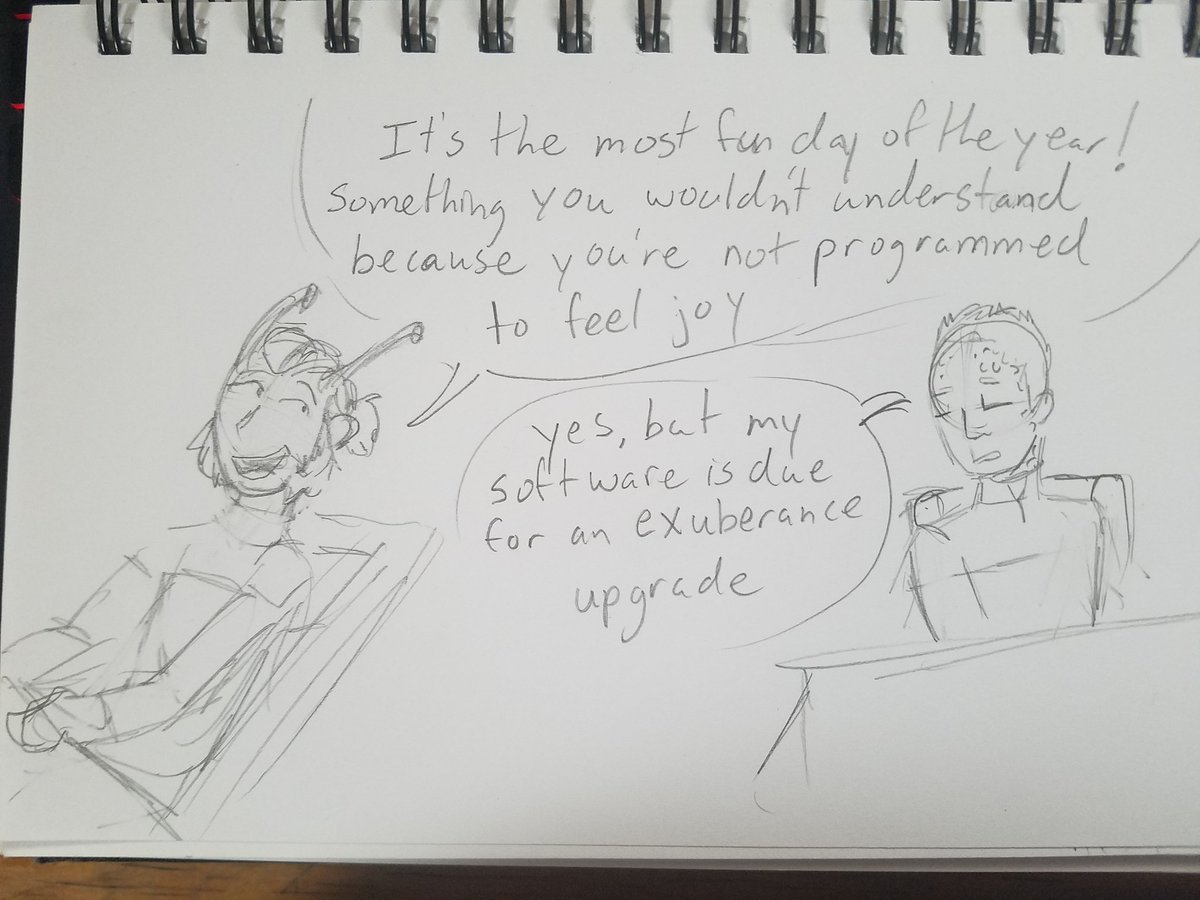 It's the most fun day of the year!
Something you wouldn't understand
because you're not programmed
to feel joy
yes, but my
software is due
for an exuberance
upgrade